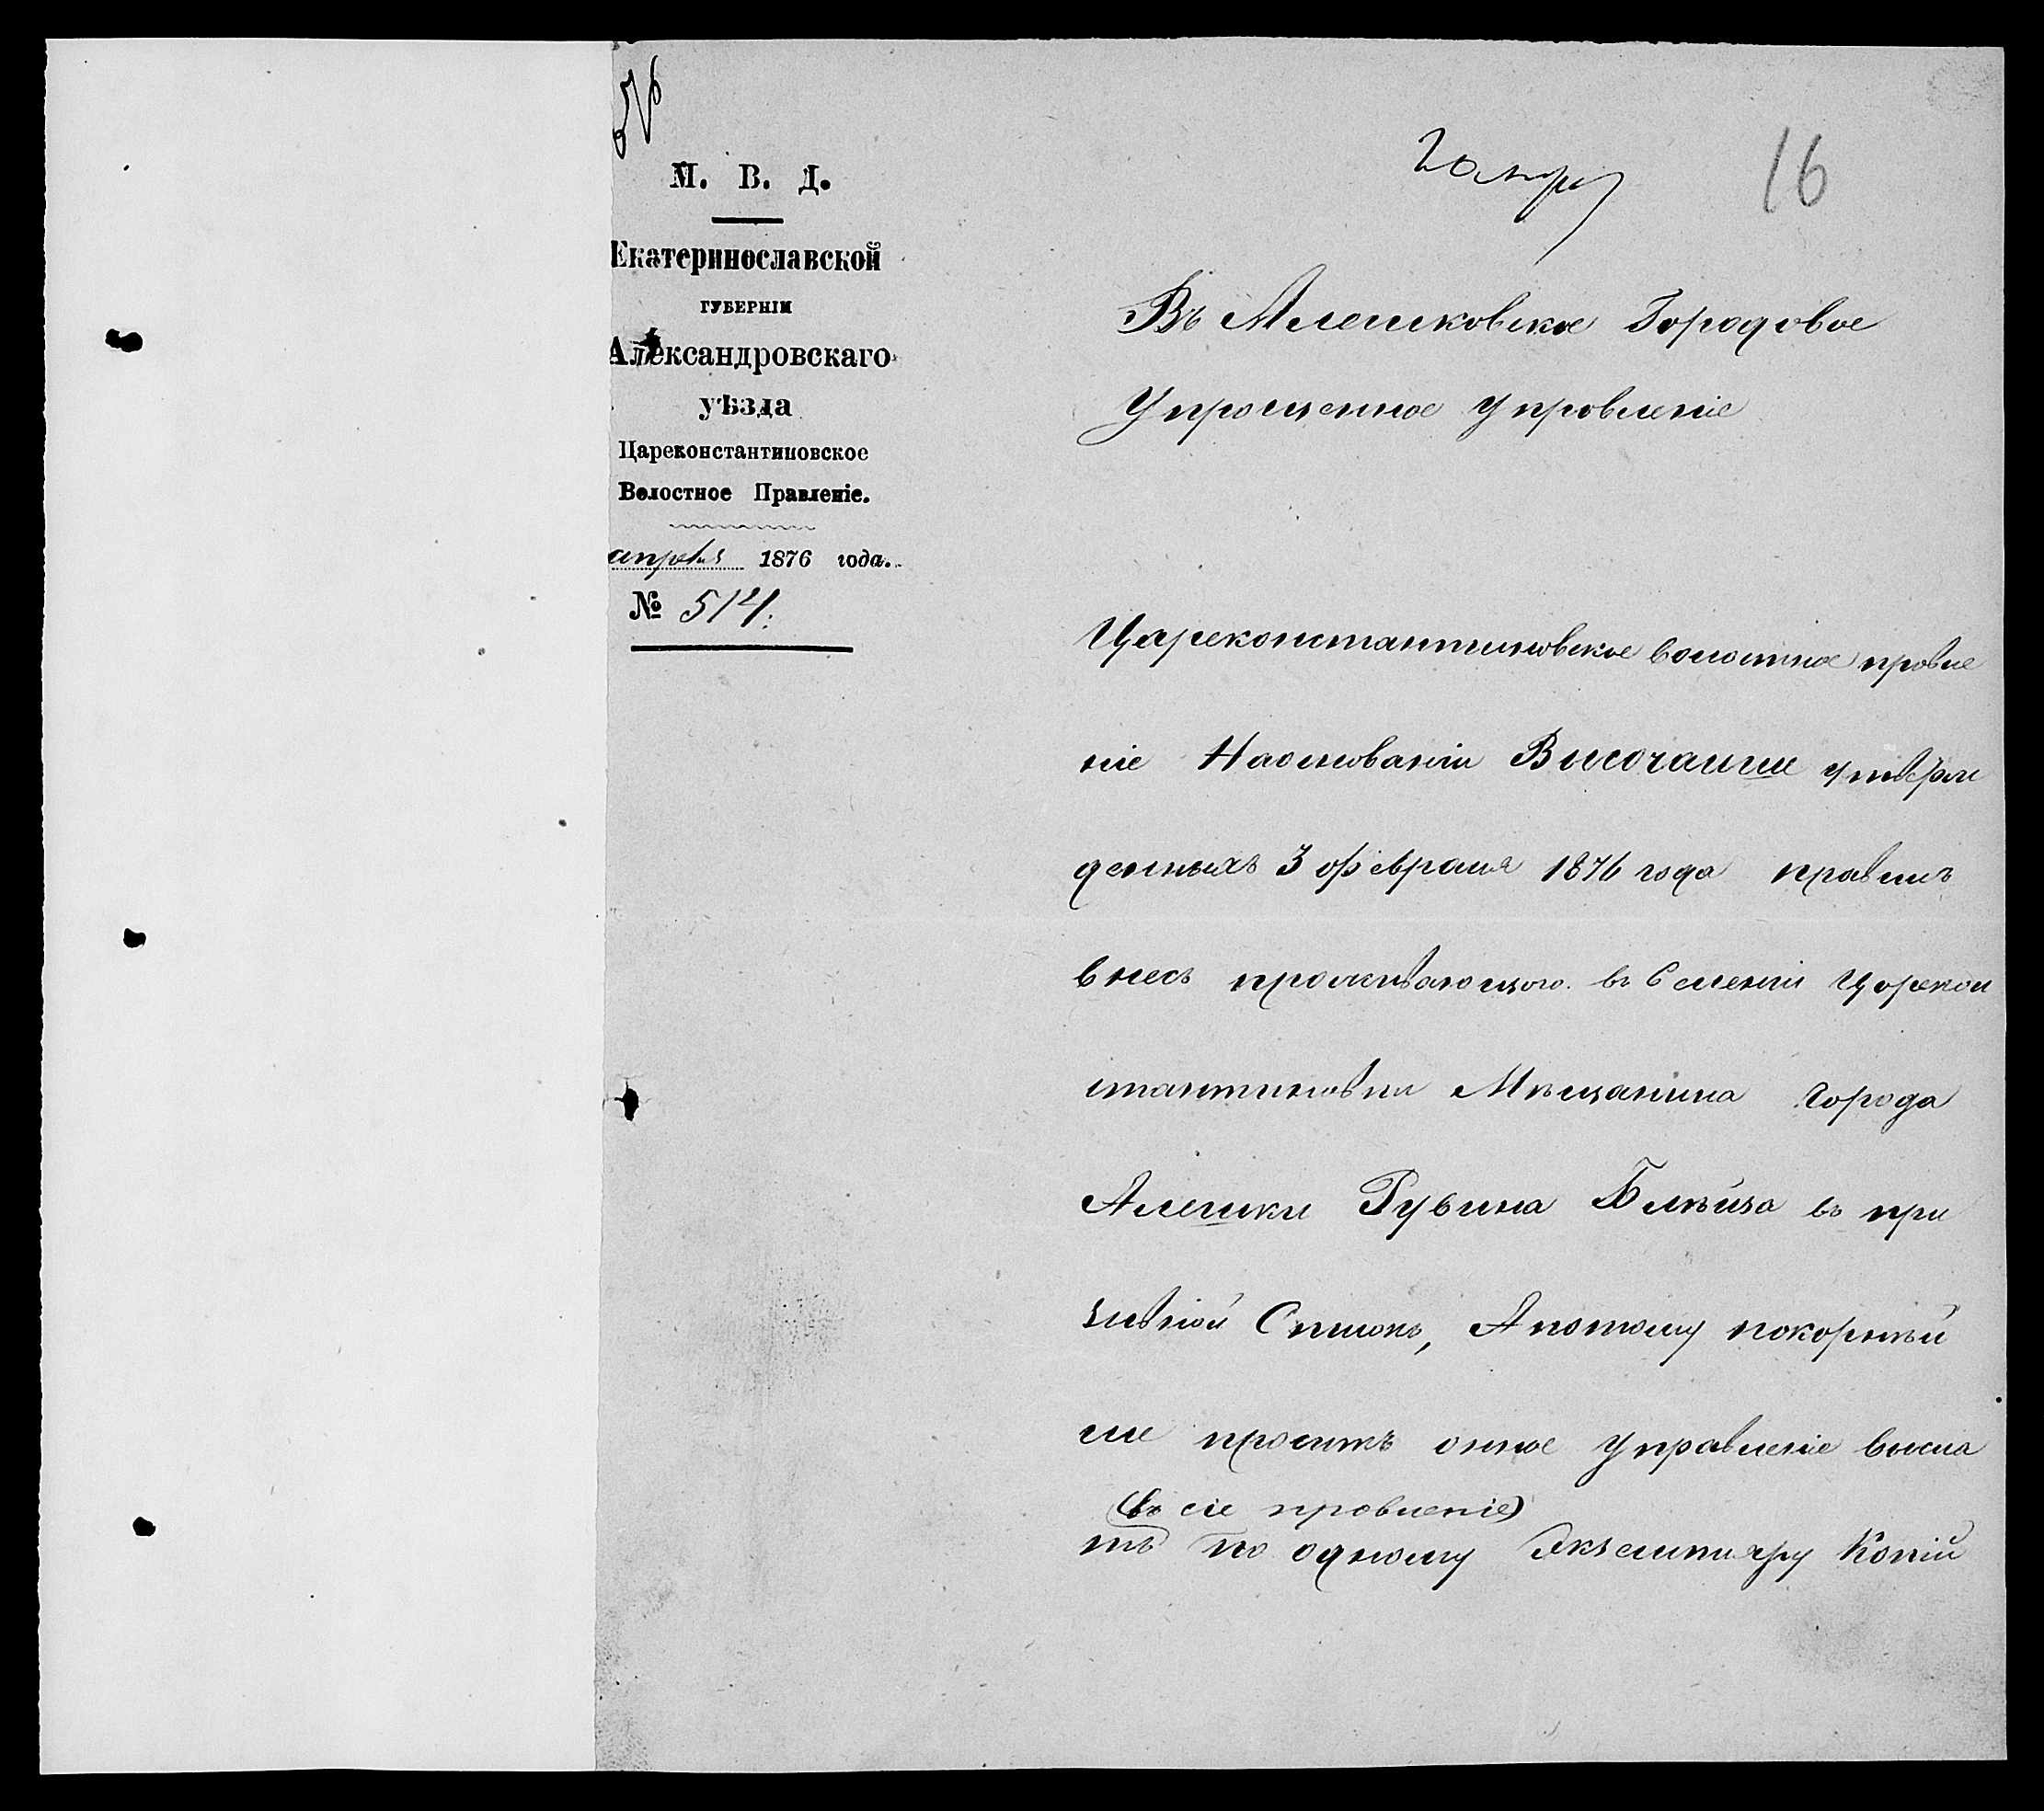 М. В. Д.
Екатеринославской
ГУБЕРНІИ
Александровскаго
уѣзда
Цареконстантиновское
Волостное Правленіе.
апреля 1876 года.
№ 514.
16
Въ Алешковское Городовое
Упрощенное Управленіе
Цареконстантиновское волостное правле
ніе На основаніи Височайше утверж
денныхъ 3 февраля 1876 года правилъ
внесъ проживающого въ Селеніи Царекон
стантиновки Мѣщанина города
Алешки Рувина Блѣйза въ при
зивной Списокъ, А потому покорнѣй
ше проситъ онное Управленіе высла
(въ сіе правленіе)
ть по одному Экземпляру Копій